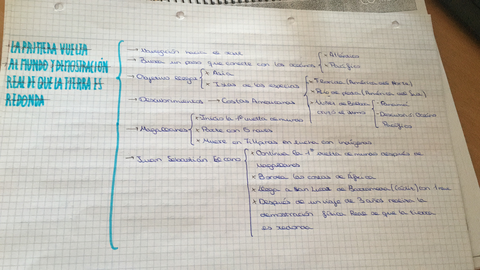 LA PRIMERA VUELTA
AL MUNDO Y DEMOSTRACIÓN
REAL DE QUE LA TIERRA ES
REDONDA
→ Navegación hacia el sur
→ Busca un paso que conecte con los océanos
* Atlántico
* Pacífico
→ Objetivo llegar
* Asia
* Islas de las especias
→ Descubrimientos → Costas Americanas
* Florida (América del Norte)
* Río de (América del Sur)
* Núñez de Balboa
cruzó el
- Panamá
- Descubrió Océano
Pacífico
→ Magallanes
* Inicia la 1ª vuelta al mundo
* Parte con 5 naves
* Muere en Filipinas en lucha con indígenas
→ Juan Sebastián Elcano
* Continua la 1ª vuelta al mundo después de
Magallanes
* Bordea las costas de África
* Llega a San Lucas de Barrameda (Cádiz) con 1 nave
* Después de un viaje de 3 años realiza la
demostración física Real de que la tierra
es redonda